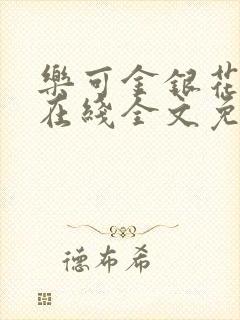 樂可金銀花
在綫全文免
德布希